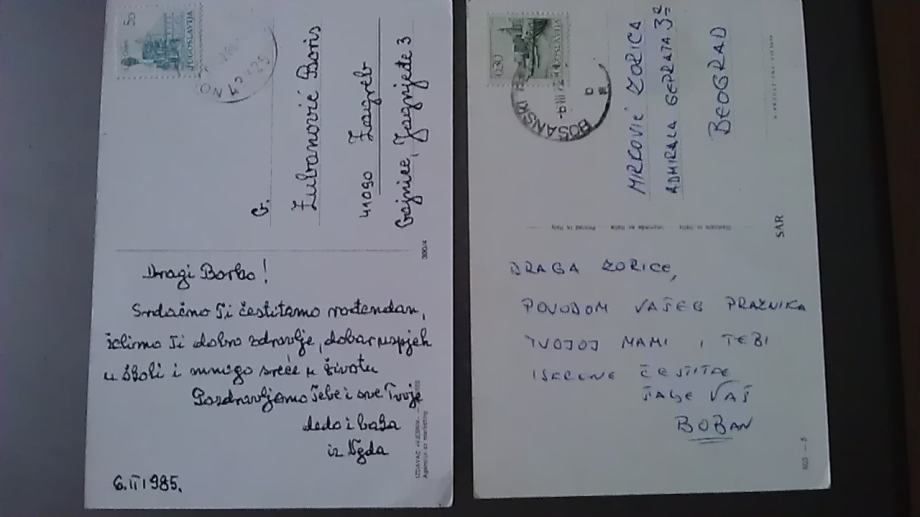 50
JUGOSLAVIJA
G.
Ljubanović Boris
41090 Zagreb
Gajnice, Jagnjeđe 3
Dragi Borko!
Srdačno Ti čestitamo rođendan,
želimo Ti dobro zdravlje, dobar uspjeh
u školi i mnogo sreće u životu
Pozdravljamo Tebe i sve Tvoje
dedo i baba
iz
6.II 1985.
0,30
JUGOSLAVIJA
BOSANSKI
MIRKOVIĆ ZORICA
ADMIRALA GEPRATA
BEOGRAD
Printed in Italy
SAR
DRAGA ZORICE,
POVODOM VAŠEG PRAZNIKA
TVOJOJ MAMI, TEBI
ISKRENE ČESTITKE
ŠALJE VAŠ
BOBAN